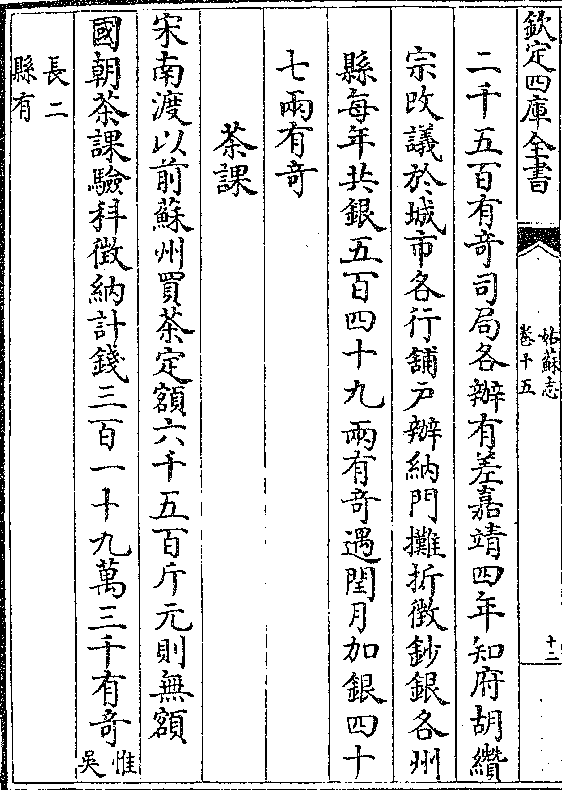 欽定四庫全書
姑蘇志
卷十五
十二
二千五百有奇司局各辦有差嘉靖四年知府胡纘
宗改議於城市各行舖戸辦納門攤折徵鈔銀各州
縣每年共銀五百四十九兩有奇遇閏月加銀四十
七兩有奇
茶課
宋南渡以前蘇州買茶定額六千五百斤元則無額
國朝茶課驗科徵納計錢三百一十九萬三千有奇惟吳
長二
縣有